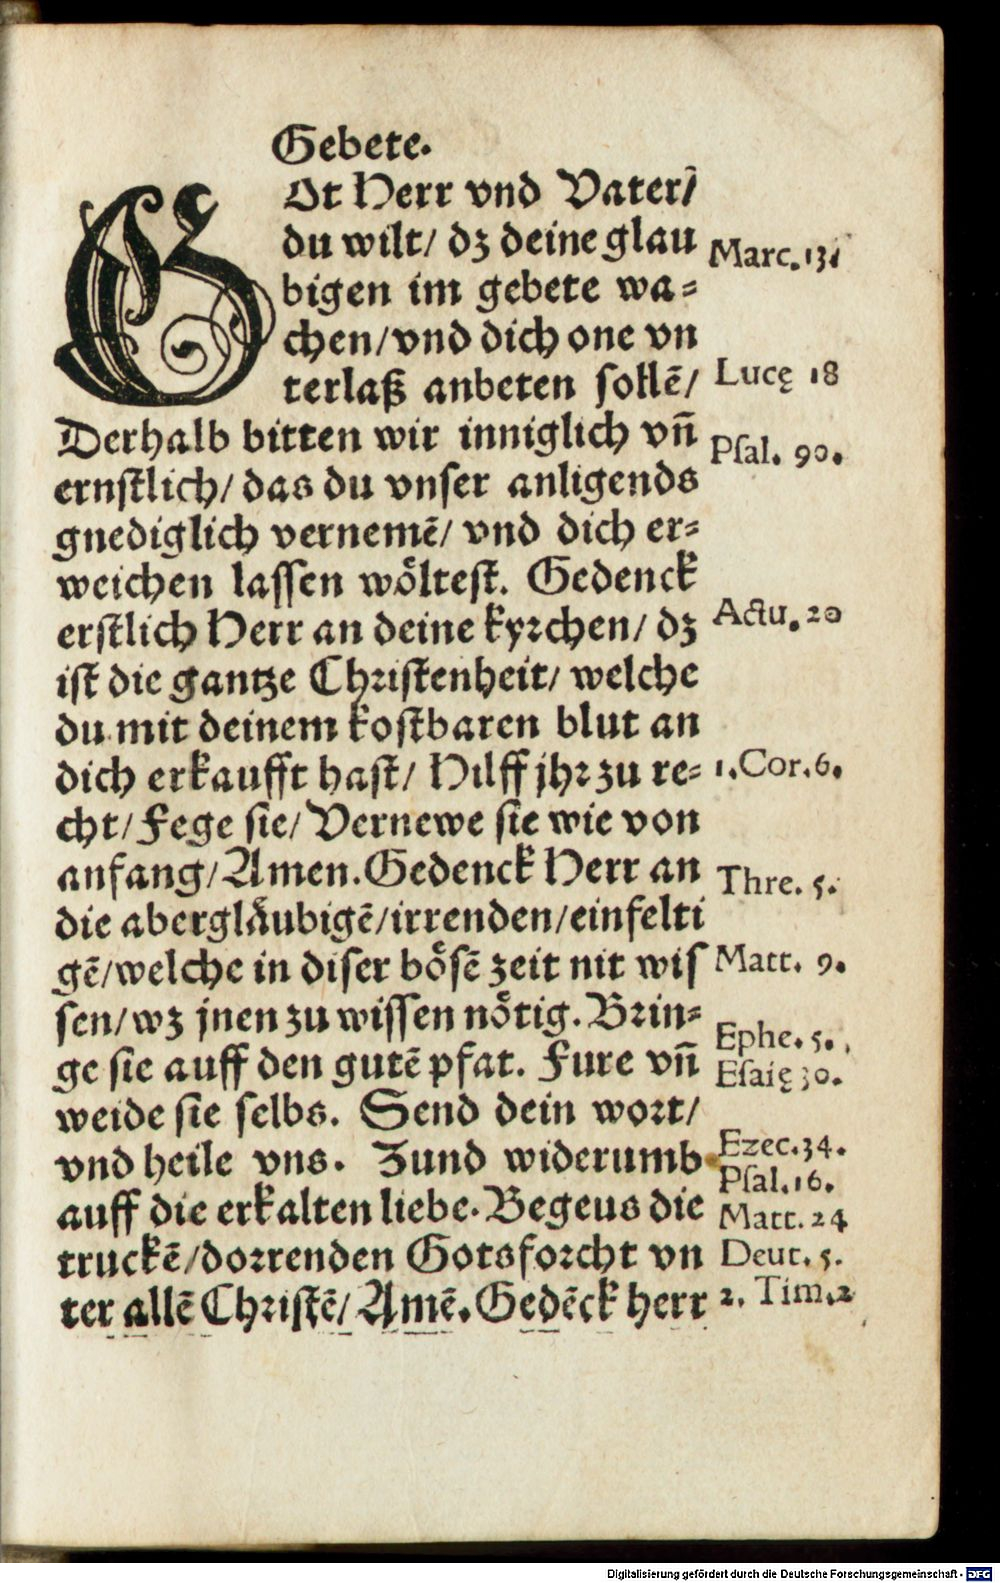 Gebete.
GOt Herr vnd Vater/
du wilt/ dz deine glau
Marc. 13.
bigen im gebete wa=
chen/vnd dich one vn
terlaß anbeten sollē/
Lucę 18
Derhalb bitten wir inniglich vn̄
Psal. 90.
ernstlich/ das du vnser anligends
gnediglich vernemē/ vnd dich er=
weichen lassen wöltest. Gedenck
erstlich Herr an deine kyrchen/ dz
Actu. 20
ist die gantze Christenheit/ welche
du mit deinem kostbaren blut an
dich erkaufft hast/ Hilff jhr zu re=
1. Cor. 6.
cht/ Fege sie/ Vernewe sie wie von
anfang/ Amen. Gedenck Herr an
Thre. 5.
die abergläubigē/irrenden/einfelti
gē/welche in diser bösē zeit nit wis
Matt. 9.
sen/ wz jnen zu wissen nötig. Brin=
Ephe. 5.
ge sie auff den gutē pfat. Fure vn̄
Esaię 30.
weide sie selbs. Send dein wort/
Ezec. 34.
vnd heile vns. Zund widerumb
Psal. 16.
auff die erkalten liebe. Begeus die
Matt. 24
truckē/dorrenden Gotsforcht vn
Deut. 5.
ter allē Christē/ Amē. Gedēck herr
2. Tim. 2
Digitalisierung gefördert durch die Deutsche Forschungsgemeinschaft - DFG